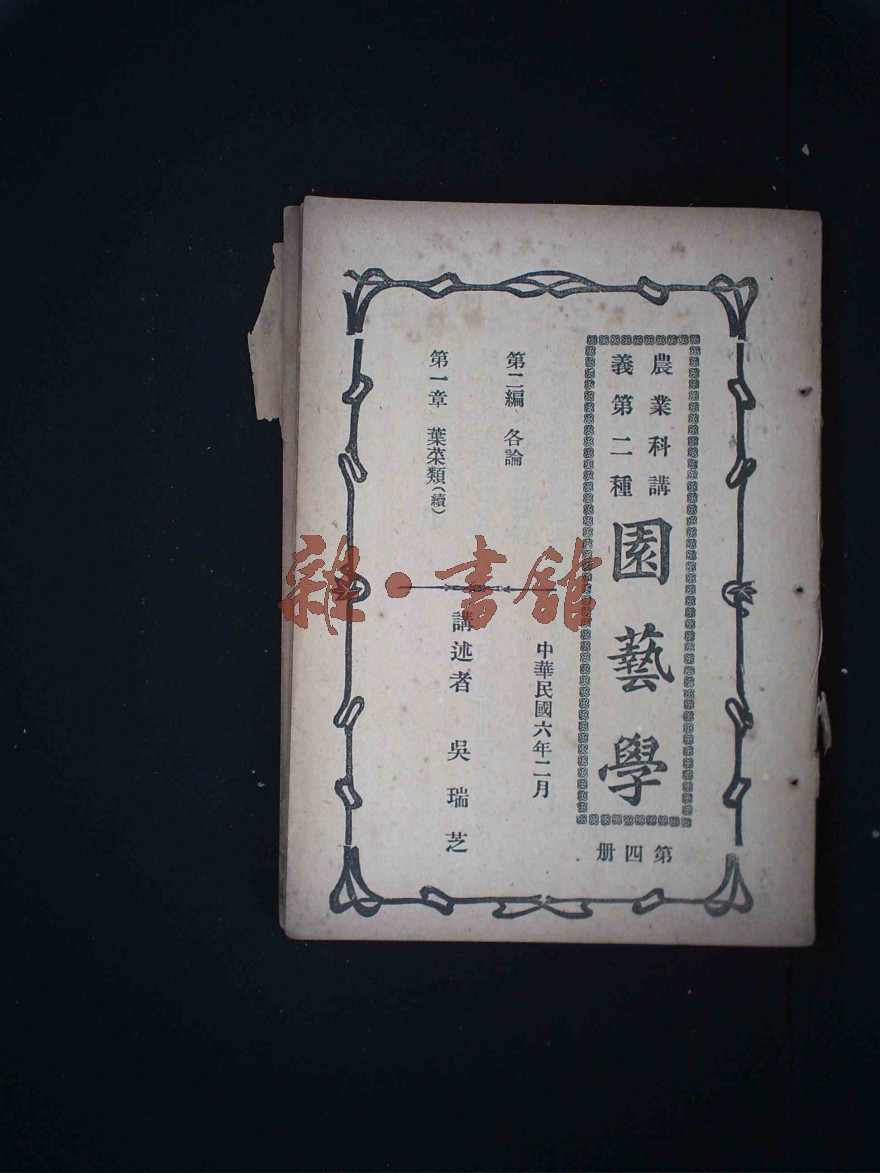 農業科講
義第二種
園藝學
第四冊
中華民國六年二月
第二編 各論
第一章 葉菜類(續)
講述者 吳瑞芝
雜·書館